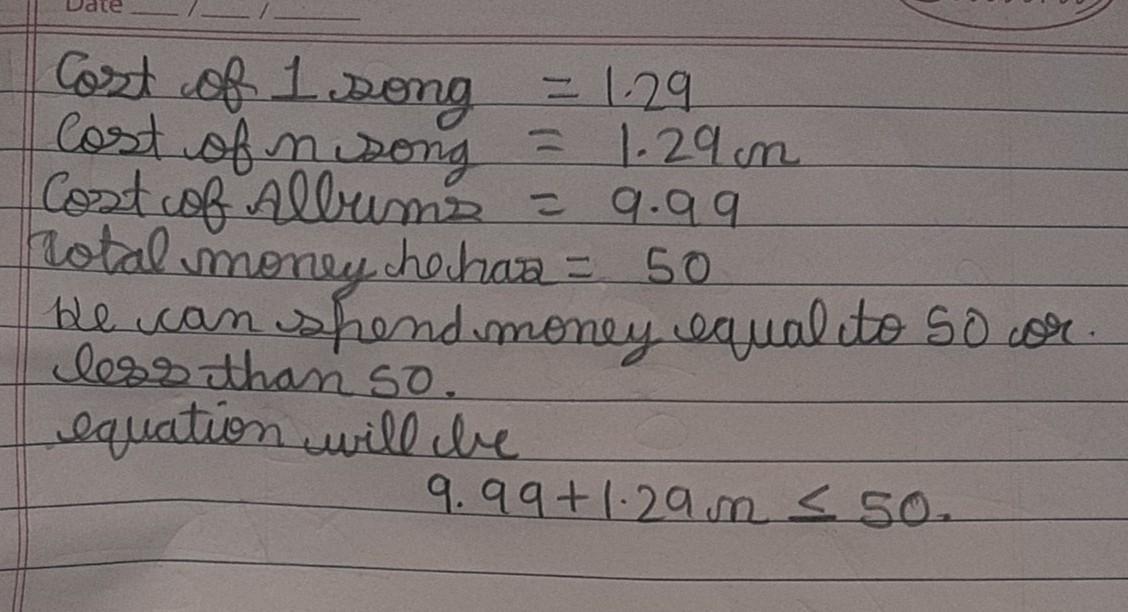 Date __/__/____
Cost of 1 song = 1.29
Cost of n song = 1.29 n
Cost of Albums = 9.99
Total money he has = 50
He can spend money equal to 50 or.
less than 50.
equation will be
9.99 + 1.29 n ≤ 50.